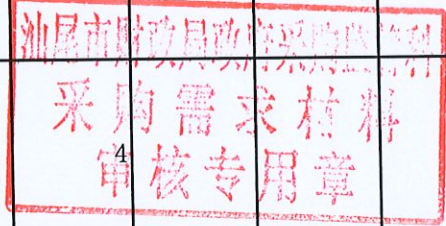 汕尾市财政局政府采购监管科
采购需求材料
4
审核专用章